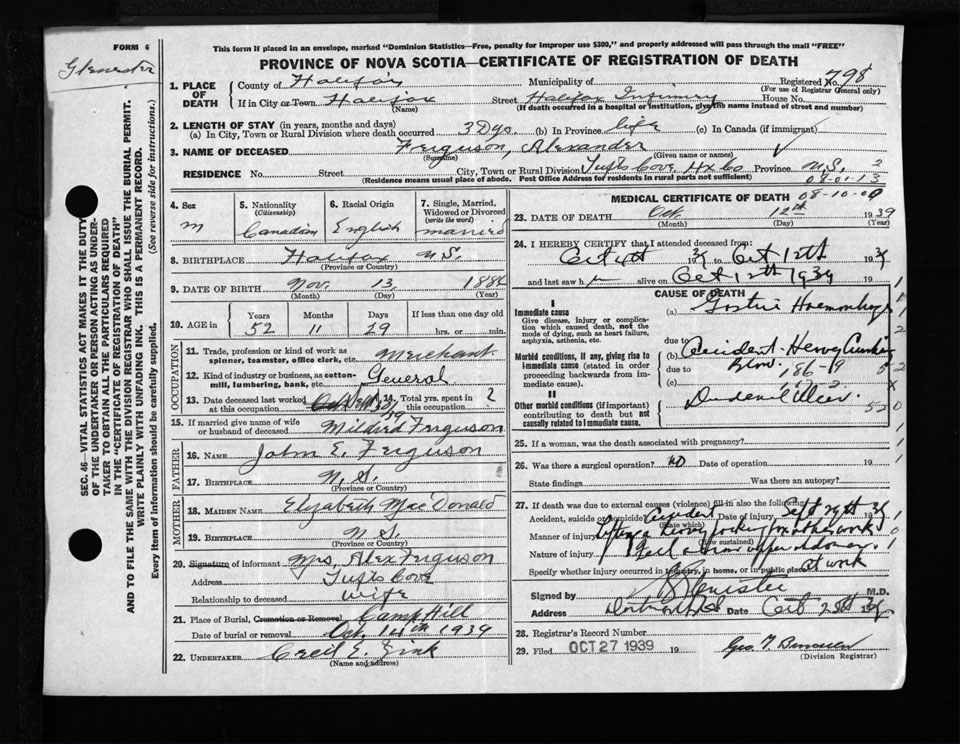 FORM 6
This form if placed in an envelope, marked "Dominion Statistics—Free, penalty for improper use $300," and properly addressed will pass through the mail "FREE"
PROVINCE OF NOVA SCOTIA—CERTIFICATE OF REGISTRATION OF DEATH
SEC. 46—VITAL STATISTICS ACT MAKES IT THE DUTY
OF THE UNDERTAKER OR PERSON ACTING AS UNDER-
TAKER TO OBTAIN ALL THE PARTICULARS REQUIRED
IN THE "CERTIFICATE OF REGISTRATION OF DEATH"
AND TO FILE THE SAME WITH THE DIVISION REGISTRAR WHO SHALL ISSUE THE BURIAL PERMIT.
WRITE PLAINLY WITH UNFADING INK. THIS IS A PERMANENT RECORD.
Every item of information should be carefully supplied. (See reverse side for instructions.)
1. PLACE OF DEATH County of Halifax Municipality of Registered No. 798
(For use of Registrar General only)
If in City or Town Halifax Street Halifax Infirmary House No.
(Name) (If death occurred in a hospital or institution, give the name instead of street and number)
2. LENGTH OF STAY (in years, months and days)
(a) In City, Town or Rural Division where death occurred 3 Dys. (b) In Province life (c) In Canada (if immigrant)
3. NAME OF DECEASED Ferguson, Alexander
(Surname) (Given name or names)
RESIDENCE No. Street City, Town or Rural Division Tufts Cove Hx Co Province N.S. 2
(Residence means usual place of abode. Post Office Address for residents in rural parts not sufficient)
4. Sex M
5. Nationality (Citizenship) Canadian
6. Racial Origin English
7. Single, Married, Widowed or Divorced (write the word) married
8. BIRTHPLACE Halifax N.S.
(Province or Country)
9. DATE OF BIRTH Nov. 13, 1886
(Month) (Day) (Year)
10. AGE in Years 52 Months 11 Days 29 If less than one day old hrs. or min.
OCCUPATION
11. Trade, profession or kind of work as spinner, teamster, office clerk, etc. Merchant
12. Kind of industry or business, as cotton-mill, lumbering, bank, etc. General
13. Date deceased last worked at this occupation
14. Total yrs. spent in this occupation 2
15. If married give name of wife or husband of deceased Mildred Ferguson
FATHER
16. NAME John E. Ferguson
17. BIRTHPLACE N.S.
(Province or Country)
MOTHER
18. MAIDEN NAME Elizabeth MacDonald
19. BIRTHPLACE N.S.
(Province or Country)
20. Signature of informant Mrs. Alex Ferguson
Address Tufts Cove
Relationship to deceased Wife
21. Place of Burial, Cremation or Removal Camp Hill
Date of burial or removal Oct. 14th 1939
22. UNDERTAKER Cecil E. Zink
(Name and address)
MEDICAL CERTIFICATE OF DEATH
23. DATE OF DEATH Oct 12th 1939
(Month) (Day) (Year)
24. I HEREBY CERTIFY that I attended deceased from:
Oct 12th
and last saw h alive on Oct 12th 1939 19
CAUSE OF DEATH
I
Immediate cause
Give disease, injury or complication which caused death, not the mode of dying, such as heart failure, asphyxia, asthenia, etc.
(a)
due to
Morbid conditions, if any, giving rise to immediate cause (stated in order proceeding backwards from immediate cause).
(b) Accident
due to 186-
(c)
II
Other morbid conditions (if important) contributing to death but not causally related to immediate cause.
25. If a woman, was the death associated with pregnancy?
26. Was there a surgical operation? no Date of operation 19
State findings Was there an autopsy?
27. If death was due to external causes (violence) fill in also the following:
Accident, suicide or homicide Accident Date of injury Sept 29th 39
(State which)
Manner of injury
(How sustained)
Nature of injury
Specify whether injury occurred in industry, in home, or in public place at work
Signed by M.D.
Address Date
28. Registrar's Record Number
29. Filed OCT 27 1939 19
(Division Registrar)